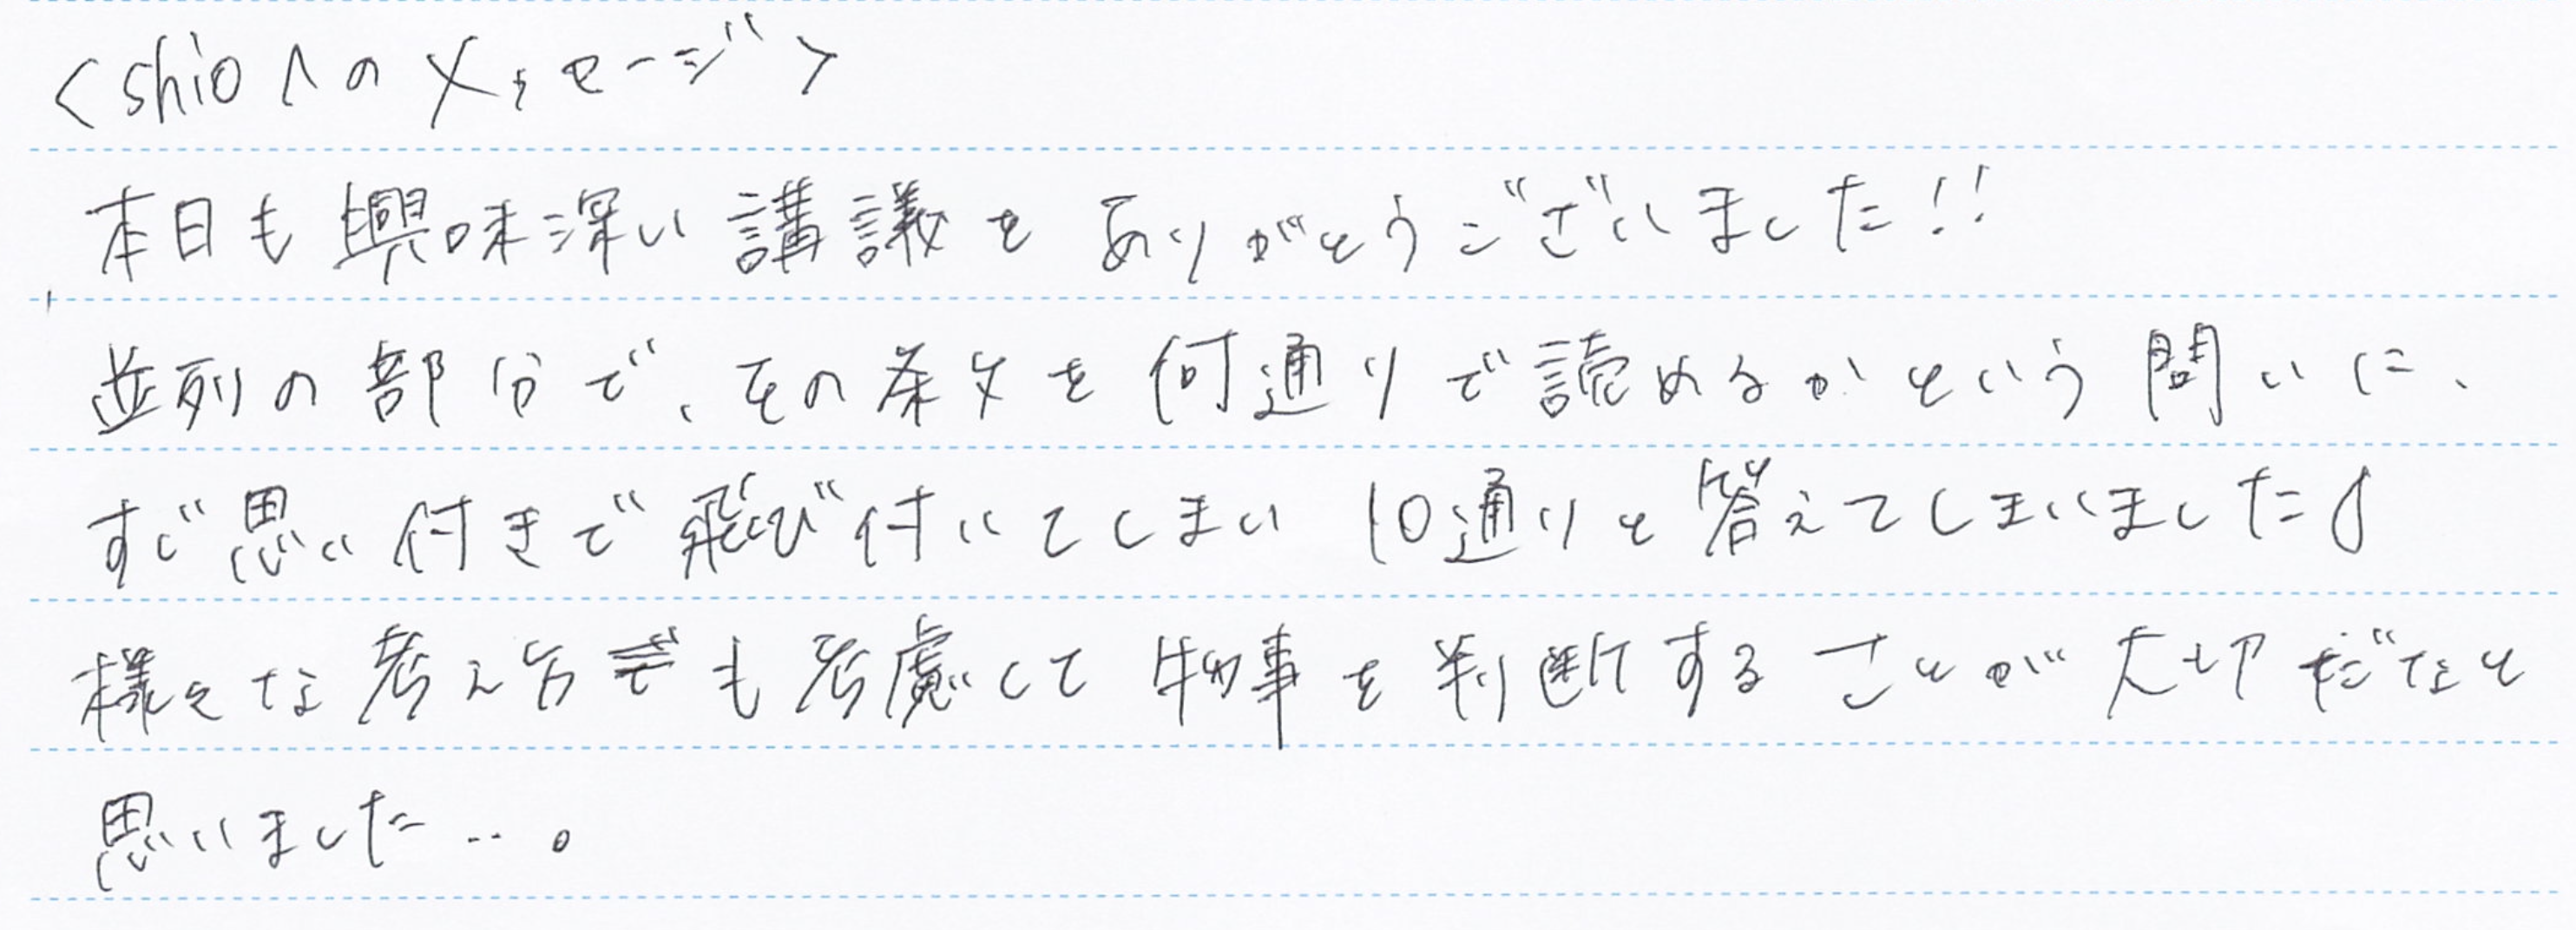 <shioへのメッセージ>
本日も興味深い講議をありがとうございました!!
並列の部分で、その条文を何通りで読めるかという問いに、
すぐ思い付きで飛び付いてしまい10通りと答えてしまいました
様々な考え方でも考慮して物事を判断することが大切だなと
思いました…。